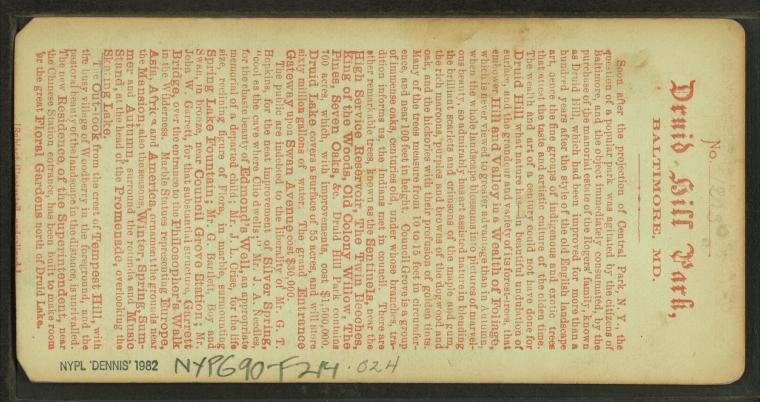 No.
Druid Hill Park,
BALTIMORE, MD.
Soon after the projection of Central Park, N. Y., the
question of a popular park was agitated by the citizens of
Baltimore, and the object immediately consumated, by the
purchase of the manorial estate of the Rogers' family, known
as Druid Hill, which had been improved for more than a
hundred years after the style of the old English landscape
art, hence the fine groups of indigenous and exotic trees
that attest the taste and artistic culture of the olden time.
The wealth and art of a century could not have done for
Druid Hill what nature has, in the undulation of
surface, and the grandeur and variety of its forest-trees, that
embower Hill and Valley in a Wealth of Foliage,
which is never viewed to greater advantage than in Autumn;
when the whole landscape blossoms into pictures of marvel-
ous beauty, so admirably has art assisted nature in blending
the brilliant scarlets and crimsons of the maple and gum,
the rich maroons, purples and browns of the dogwood and
oak, and the hickories with their profusion of golden tints.
Many of the trees measure from 10 to 15 feet in circumfer-
ence, and near 100 feet in height. Council Grove is a group
of immense oaks, centuries old, under whose branches, tra-
dition informs us, the Indians met in council. There are
other remarkable trees, known as the Sentinels, near the
High Service Reservoir, The Twin Beeches,
King of the Woods, Old Colony Willow, The
Three Sisters Oaks, &c. The original Park contains
700 acres, which, with improvements, cost $1,500,000.
Druid Lake covers a surface of 55 acres, and will store
sixty million gallons of water. The grand Entrance
Gateway upon Swan Avenue cost $30,000.
The public are indebted to the liberality of Mr. G. T.
Hopkins, for the neat improvement of Silver Spring,
"cool as the cave where Clio dwells:" Mr. J. A. Needles,
for the chaste beauty of Edmond's Well, an appropriate
memorial of a departed child; Mr. J. L. Chase, for the life
size, reclining figure of Flora, in marble, surmounting
Spring Lake Fountain; Mr. G. Bartlett, Boy and
Swan, in bronze, near Council Grove Station; Mr.
John W. Garrett, for that substantial structure, Garrett
Bridge, over the entrance to the Philosopher's Walk
in the Wilderness. Marble Statues representing Europe,
Asia, Africa and America, ornament the grounds near
the Mansion; also the seasons, Winter, Spring, Sum-
mer and Autumn, surround the rotunda and Music
Stand, at the head of the Promenade, overlooking the
Skating Lake.
The Out-look from the crest of Tempest Hill, with
the rural village of Woodberry in the foreground, and the
pastoral range of the landscape in the distance, is unrivalled.
The now Residence of the Superintendent, near
the Chinese Station entrance, has been built to make room
for the great Floral Gardens north of Druid Lake.
NYPL 'DENNIS' 1982
NYPG90-F214.024